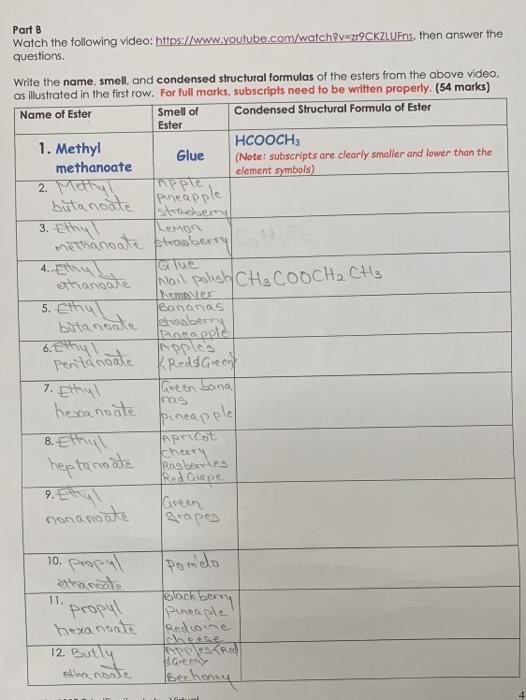 Part B
Watch the following video: https://www.youtube.com/watch?v=zr9CKZLUFns, then answer the
questions.
Write the name, smell, and condensed structural formulas of the esters from the above video,
as illustrated in the first row. For full marks, subscripts need to be written properly. (54 marks)
Name of Ester
Smell of
Ester
Condensed Structural Formula of Ester
1. Methyl
methanoate
Glue
HCOOCH₃
(Note: subscripts are clearly smaller and lower than the
element symbols)
2. Methyl
butanoate
Apple
Pineapple
Strawberry
3. Ethyl
methanoate
Lemon
strawberry
4. Ethyl
ethanoate
Glue
Nail polish
Remover
CH₃COOCH₂CH₃
5. Ethyl
butanoate
Bananas
strawberry
Pineapple
6. Ethyl
Pentanoate
Apples
(Red&Green)
7. Ethyl
hexanoate
Green bana
nas
pineapple
8. Ethyl
heptanoate
Apricot
cherry
Rasberries
Red Grape
9. Ethyl
nonanoate
Green
grapes
10. Propyl
ethanoate
Pomelo
11.
propyl
hexanoate
Blackberry
Pineaple
Redwine
cheese
12. Butly
ethanoate
Apples(Red
&Green)
Bee honey
4